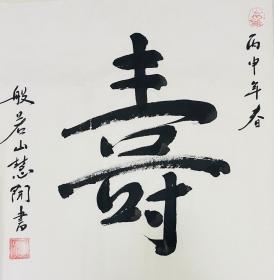 丙申年春
壽
般若山慧開書